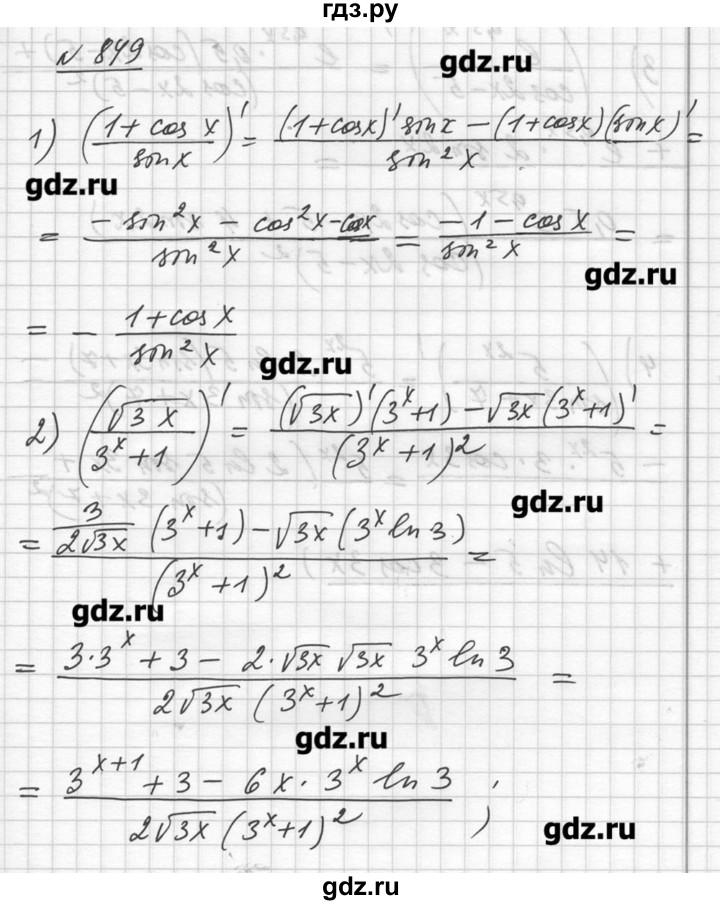 гдз.ру
№ 849
gdz.ru
1) ((1 + cos x)/(sin x))' = ((1+cosx)' sinx − (1+cosx)(sinx)')/(sin² x) =
gdz.ru
= (− sin² x − cos² x − cosx)/(sin² x) = (−1 − cos x)/(sin² x) =
gdz.ru
= − (1 + cos x)/(sin² x)
gdz.ru
2) ((√3x)/(3ˣ + 1))' = ((√3x)' (3ˣ+1) − √3x (3ˣ+1)')/((3ˣ + 1)²) =
gdz.ru
= (3/(2√3x) (3ˣ+1) − √3x (3ˣ ln 3))/((3ˣ + 1)²) =
gdz.ru
= (3·3ˣ + 3 − 2·√3x √3x 3ˣ ln 3)/(2√3x (3ˣ+1)²) =
gdz.ru
= (3ˣ⁺¹ + 3 − 6x · 3ˣ ln 3)/(2√3x (3ˣ+1)²) ;
gdz.ru
gdz.ru